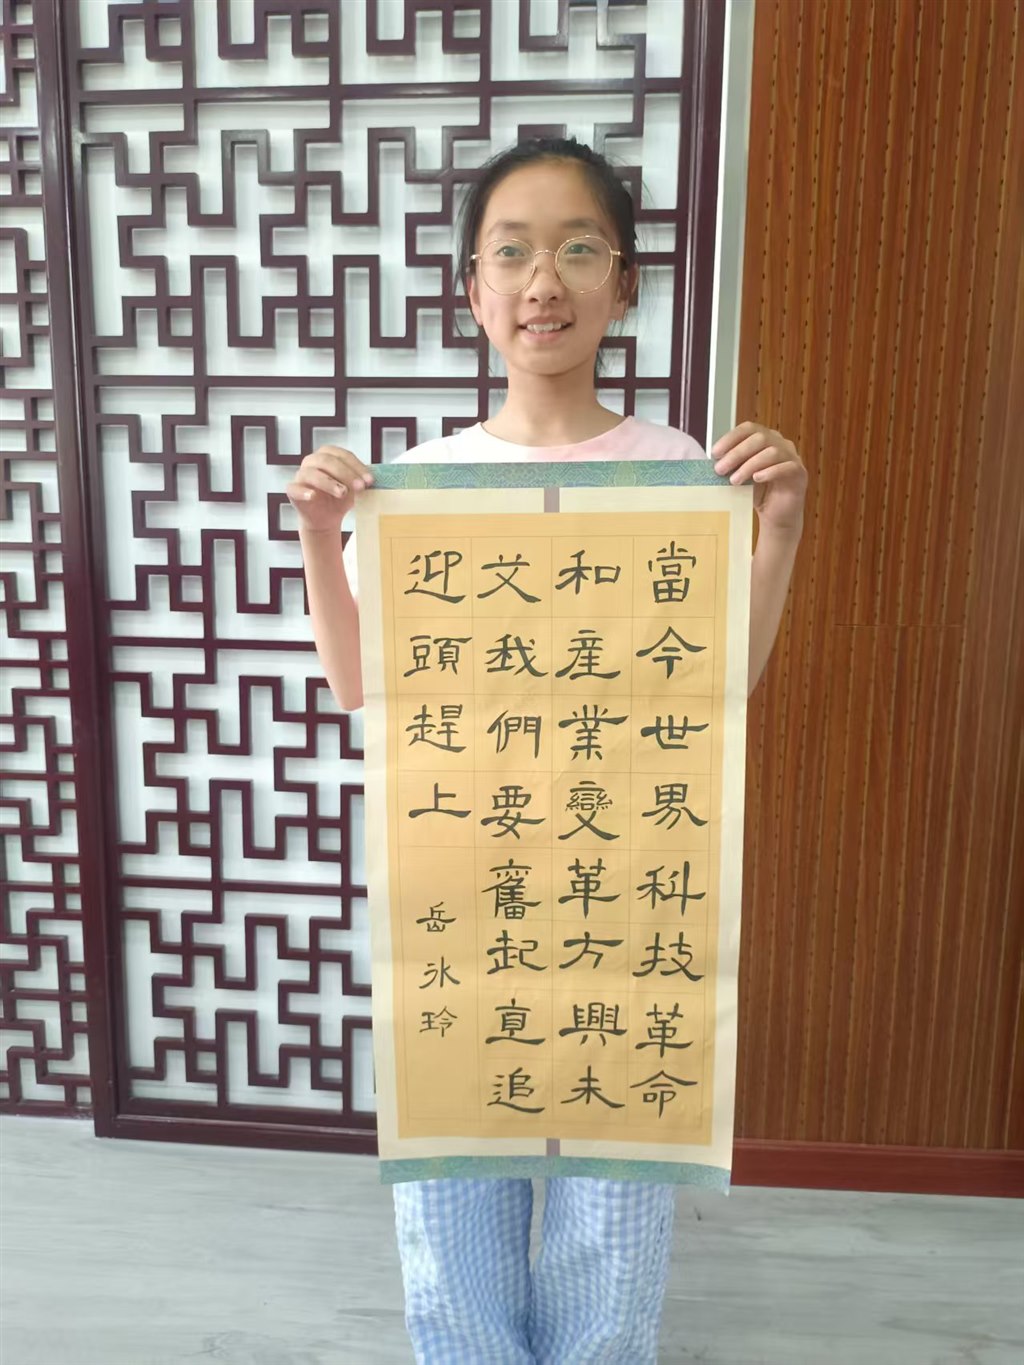 當今世界科技革命
和産業變革方興未
艾我們要奮起直追
迎頭趕上
岳冰玲